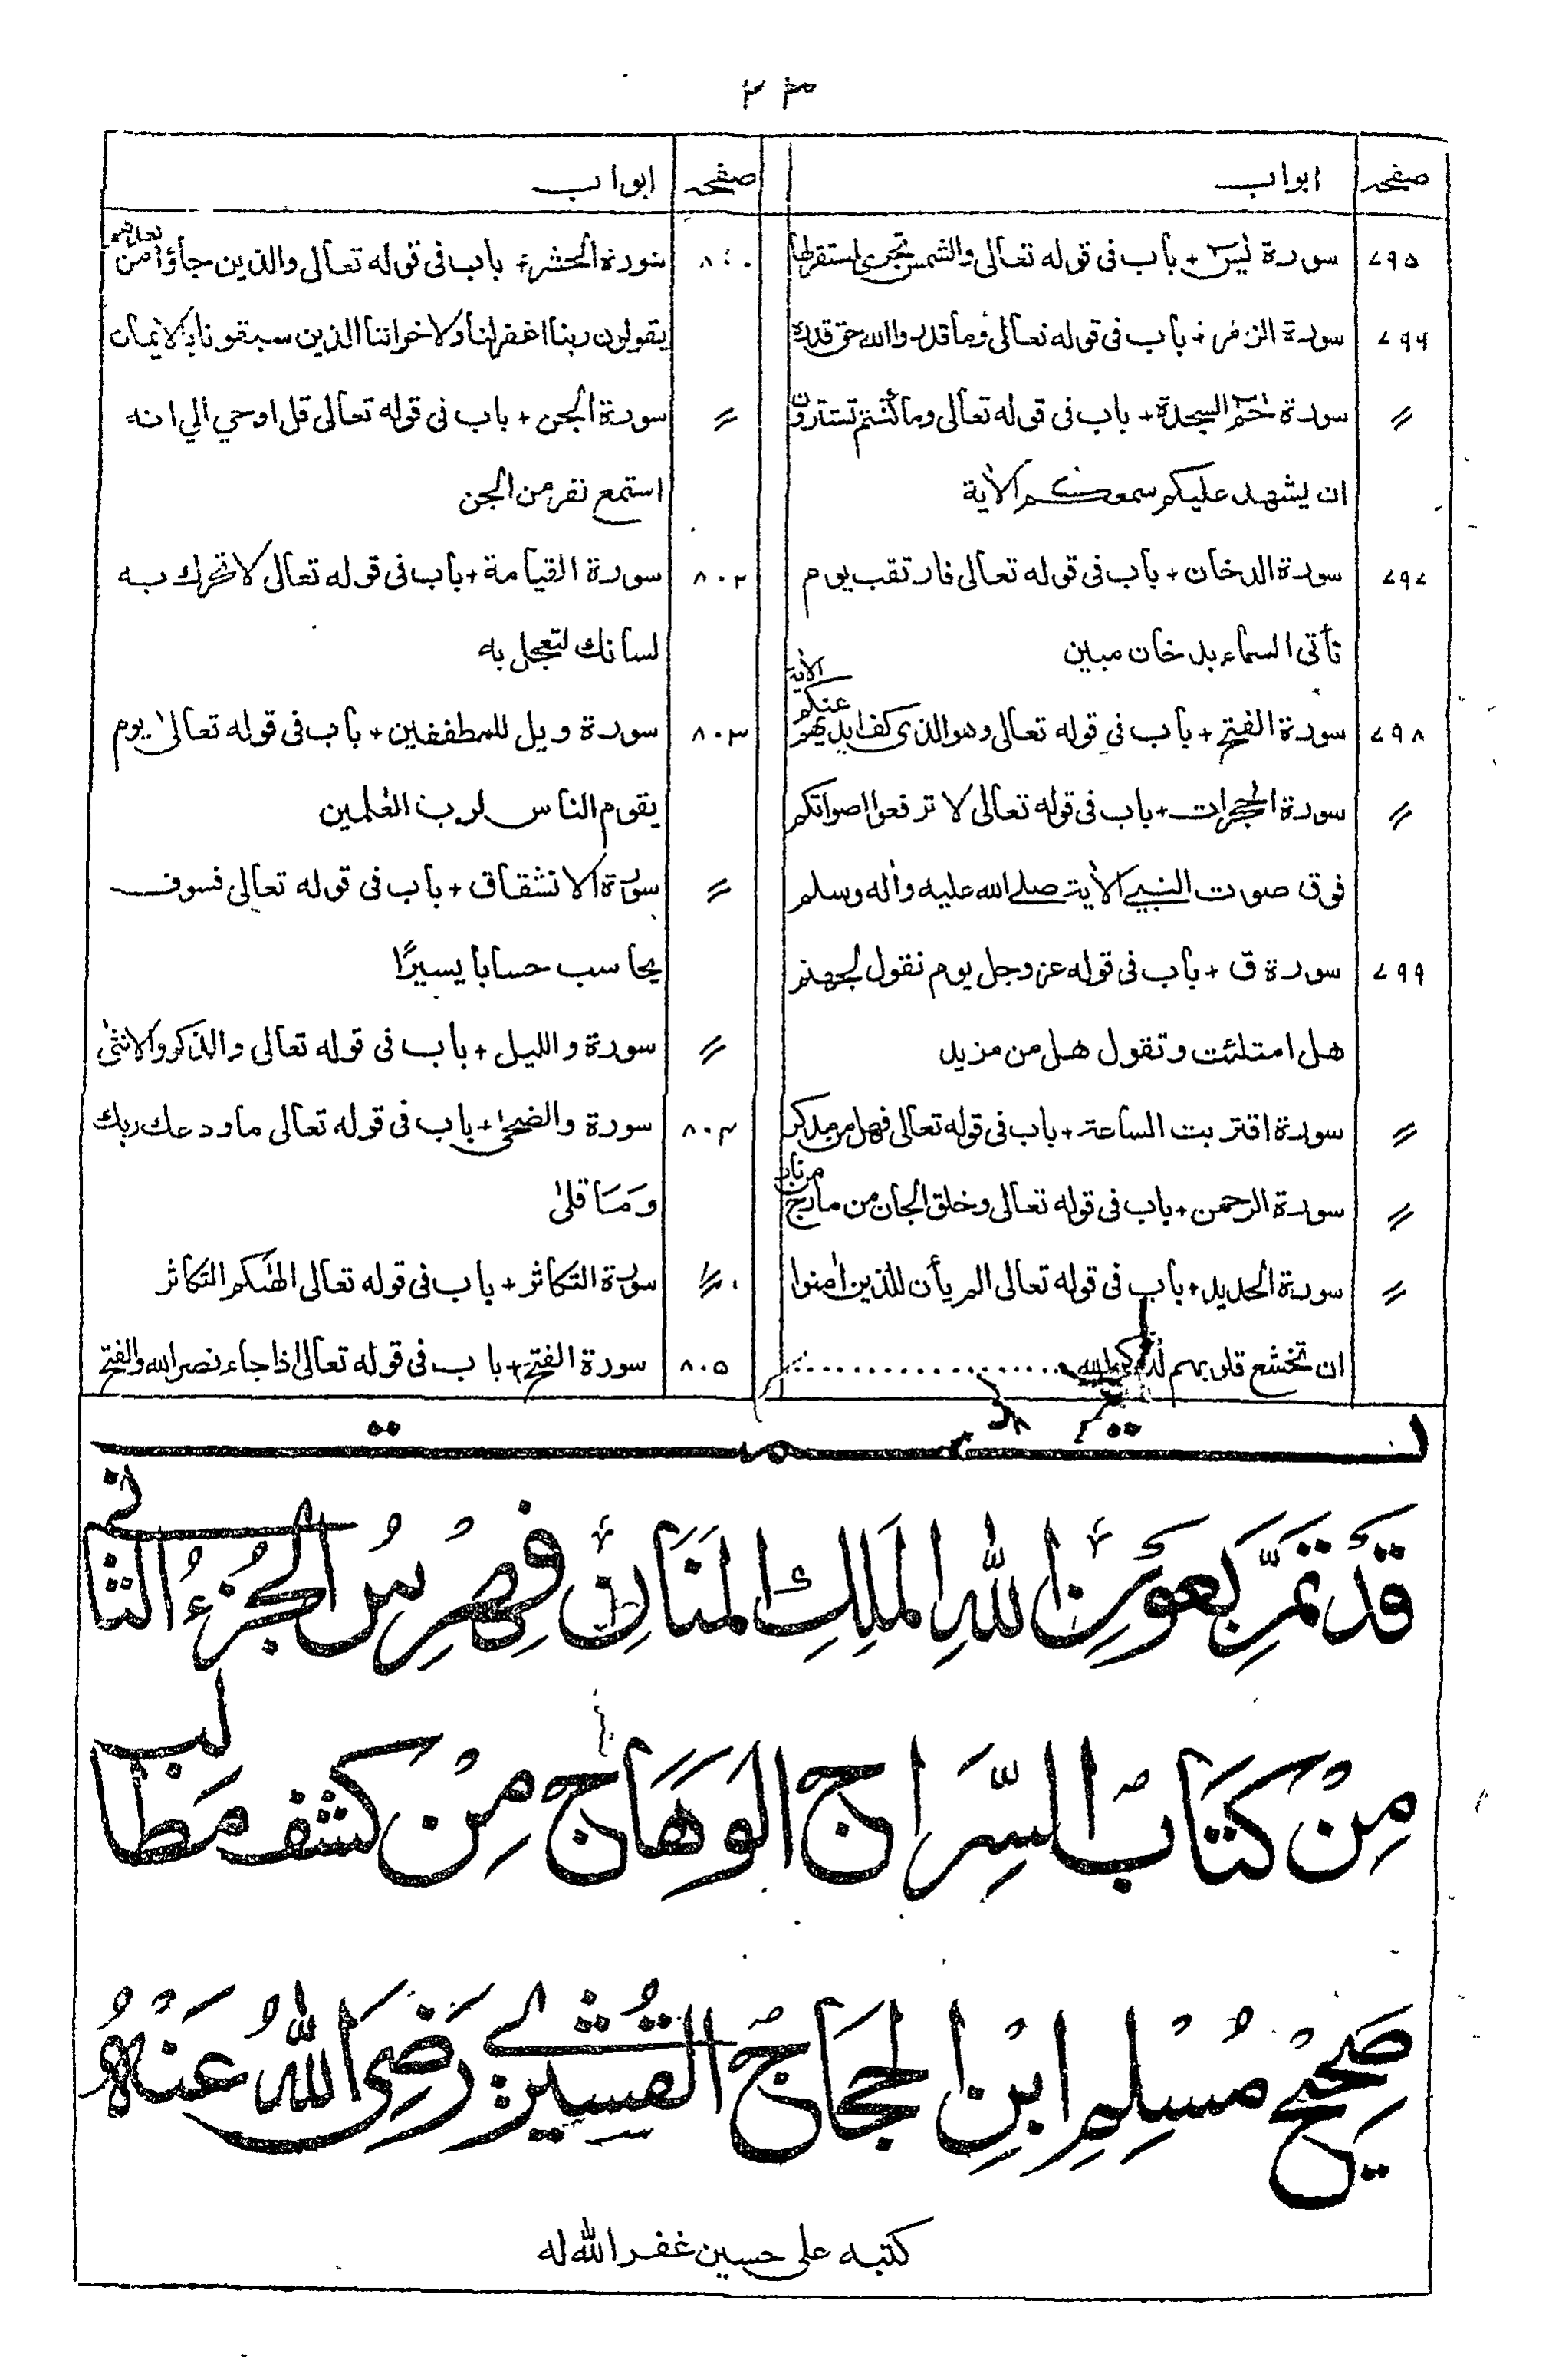 ٢٣
صفحه ابواب
٧٩٥ سورة يٰسٓ + باب فى قوله تعالى والشمس تجرى لمستقرلها
٧٩٦ سورة الزمر + باب فى قوله تعالى وما قدروا الله حق قدره
〃 سورة حٰمٓ السجدة + باب فى قوله تعالى وما كنتم تستترون
ان يشهد عليكم سمعكم الأية
٧٩٧ سورة الدخان + باب فى قوله تعالى فارتقب يوم
تأتى السماء بدخان مبين
٧٩٨ سورة الفتح + باب فى قوله تعالى وهو الذى كف ايديهم عنكم الأية
〃 سورة الحجرات + باب فى قوله تعالى لا ترفعوا اصواتكم
فوق صوت النبي الأية صلى الله عليه وأله وسلم
٧٩٩ سورة ق + باب فى قوله عز وجل يوم نقول لجهنم
هل امتلئت وتقول هل من مزيد
〃 سورة اقتربت الساعة + باب فى قوله تعالى فهل من مدكر
〃 سورة الرحمن + باب فى قوله تعالى وخلق الجان من مارج من نار
〃 سورة الحديد + باب فى قوله تعالى الم يأن للذين أمنوا
ان تخشع قلوبهم لذكر الله
صفحه ابواب
سورة الحشر + باب فى قوله تعالى والذين جاؤا من بعدهم
يقولون ربنا اغفرلنا ولاخواننا الذين سبقونا بالايمان
〃 سورة الجن + باب فى قوله تعالى قل اوحي الي انه
استمع نفر من الجن
٨٠٢ سورة القيامة + باب فى قوله تعالى لا تحرك به
لسانك لتعجل به
٨٠٣ سورة ويل للمطففين + باب فى قوله تعالى يوم
يقوم الناس لرب العٰلمين
〃 سورة الانشقاق + باب فى قوله تعالى فسوف
يحاسب حسابا يسيرًا
〃 سورة والليل + باب فى قوله تعالى والذكر والانثى
٨٠٤ سورة والضحى + باب فى قوله تعالى ما ودعك ربك
وَمَا قلىٰ
〃 سورة التكاثر + باب فى قوله تعالى الهٰىكم التكاثر
٨٠٥ سورة الفتح + باب فى قوله تعالى اذا جاء نصر الله والفتح
تمت
قَدْ تَمَّ بِعَوْنِ اللهِ الْمَلِكِ الْمَنَّانِ فِهْرِسُ الْجُزْءُ الثَّانِي
مِنْ كِتَابْ السِّرَاجِ الْوَهَّاجِ مِنْ كشف مَطَالِب
صَحِيْحِ مُسْلِمِ ابْنِ الْحَجَاجْ الْقُشَيْرِي رَضِيَ اللهُ عَنْهُ
كتبه على حسين غفر الله له